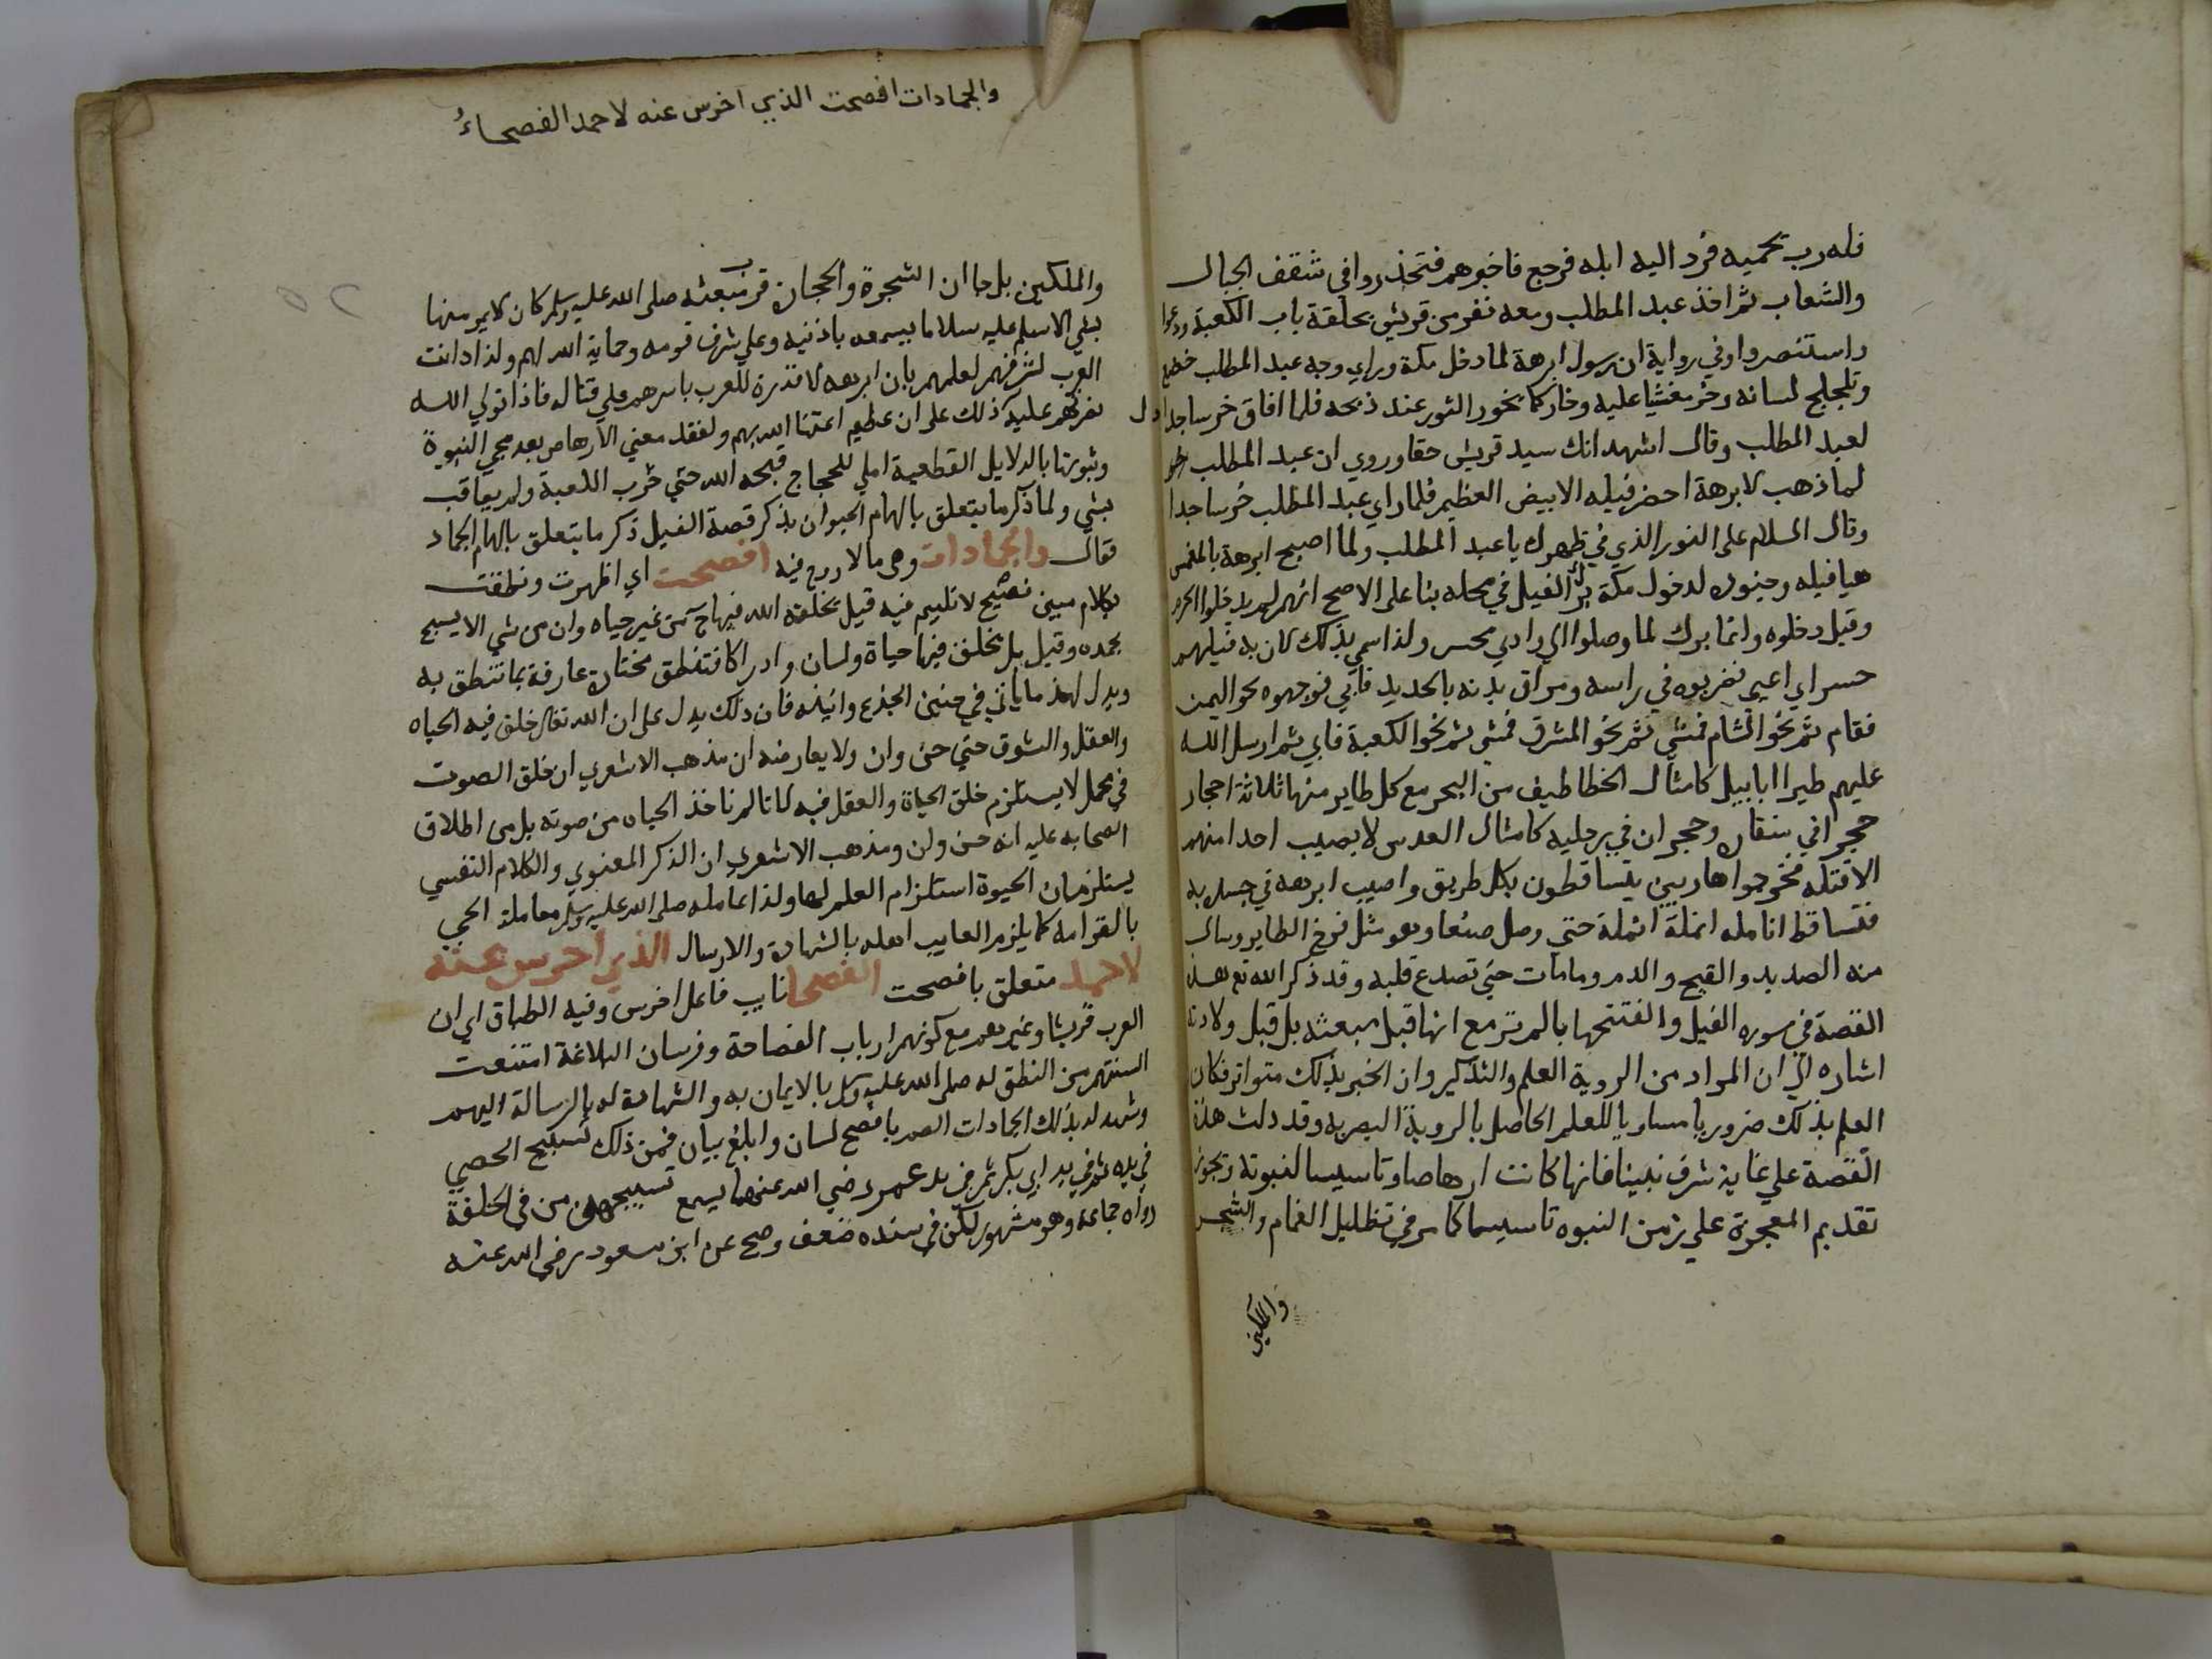 فله رب يحميه فرد اليه ابله فرجع فاخبرهم فتحذروا في شقف الجبال
والشعاب ثم اخذ عبد المطلب ومعه نفر من قريش بحلقة باب الكعبة ودعوا
واستنصروا وفي رواية ان رسول ابرهة لما دخل مكة وراي وجه عبد المطلب خضع
وتلجلج لسانه وخر مغشيا عليه وخار كما يخور الثور عند ذبحه فلما افاق خر ساجدا
لعبد المطلب وقال اشهد انك سيد قريش حقا وروي ان عبد المطلب
لما ذهب لابرهة احضر فيله الابيض العظيم فلما راي عبد المطلب خر ساجدا
وقال السلام على النور الذي في ظهرك يا عبد المطلب ولما اصبح ابرهة بالمغمس
هيا فيله وجنوده لدخول مكة برك الفيل في محله بنا على الاصح انهم لم يدخلوا الحرم
وقيل دخلوه وانما برك لما وصلوا الي وادي محسر ولذا سمي بذلك لان به فيلهم
حسر اي اعيي فضربوه في راسه ومراق بدنه بالحديد فابي فوجهوه نحو اليمن
فقام ثم نحو الشام فمشي ثم نحو المشرق فمشي ثم نحو الكعبة فابي ثم ارسل الله
عليهم طيرا ابابيل كامثال الخطاطيف من البحر مع كل طاير منها ثلاثة احجار
حجر في منقاره وحجران في رجليه كامثال العدس لا يصيب احدا منهم
الا قتله فخرجوا هاربين يتساقطون بكل طريق واصيب ابرهه في جسده
فتساقط انامله انملة انملة حتي وصل صنعا وهو مثل فرخ الطاير وسال
منه الصديد والقيح والدم وما مات حتي تصدع قلبه وقد ذكر الله تع هذه
القصة في سوره الفيل وافتتحها بالم تر مع انها قبل مبعثه بل قبل ولادته
اشاره الي ان المراد من الروية العلم والتذكير وان الخبر بذلك متواتر فكان
العلم بذلك ضروريا مساويا للعلم الحاصل بالروية البصريه وقد دلت هذه
القصة علي غاية شرف نبينا فانها كانت ارهاصا وتاسيسا لنبوته وتجوز
تقديم المعجزة علي زمن النبوه تاسيسا كما مر في تظليل الغمام والشجر
والملكين
والجمادات افصحت الذي اخرس عنه لاحمد الفصحاءُ
والملكين بل جا ان الشجرة والحجارة قرب مبعثه صلى الله عليه وسلم كان لا يمر منها
بشي الا سلم عليه سلاما يسمعه باذنيه وعلي شرف قومه وحماية الله لهم ولذا دانت
العرب لشرفهم لعلمهم بان ابرهه لا قدرة للعرب باسرهم علي قتاله فاذا تولي الله
نصرتهم عليه ذلك على ان عظيم اعتنا الله بهم ولفقد معني الارهاص بعد مجي النبوة
وثبوتها بالدلايل القطعية املي للحجاج قبحه الله حتي خرب الكعبة ولم يعاقب
بشي ولما ذكر ما يتعلق بالهام الحيوان بذكر قصة الفيل ذكر ما يتعلق بالهام الجماد
فقال والجمادات وهي ما لا روح فيه افصحت اي اظهرت ونطقت
بكلام مبين فصيح لا تلييم فيه قيل بخلقه الله فيها من غير حياه وان من شي الا يسبح
بحمده وقيل بل بخلق فيها حياة ولسان وادراكا فتنطق مختارة عارفة بما تنطق به
ويدل لهذا ما ياتي في حنين الجذع وانينه فان ذلك يدل على ان الله تعالى خلق فيه الحياه
والعقل والشوق حتي حن وان ولا يعارضه ان مذهب الاشعري ان خلق الصوت
في محل لا يستلزم خلق الحياة والعقل فيه لانا لم ناخذ الحياه من صوته بل من اطلاق
الصحابه عليه انه حن وان ومذهب الاشعري ان الذكر المعنوي والكلام النفسي
يستلزمان الحيوة استلزام العلم لها ولذا عامله صلى الله عليه وسلم معاملة الحي
بالتزامه كما يلزم الغايب اهله بالشهادة والارسال الذي اخرس عنه
لاحمد متعلق بافصحت الفصحا نايب فاعل اخرس وفيه الطباق اي ان
العرب قريشا وغيرهم مع كونهم ارباب الفصاحة وفرسان البلاغة امتنعت
السنتهم من النطق له صلى الله عليه وسلم بالايمان به والشهادة له بالرسالة اليهم
وشهد له بذلك الجمادات الصم بافصح لسان وابلغ بيان فمن ذلك تسبيح الحصي
في يده ثم في يد ابي بكر ثم في يد عمر رضي الله عنهما يسمع تسبيحهن من في الحلقة
رواه جماعة وهو مشهور لكن في سنده ضعف وصح عن ابن مسعود رضي الله عنه